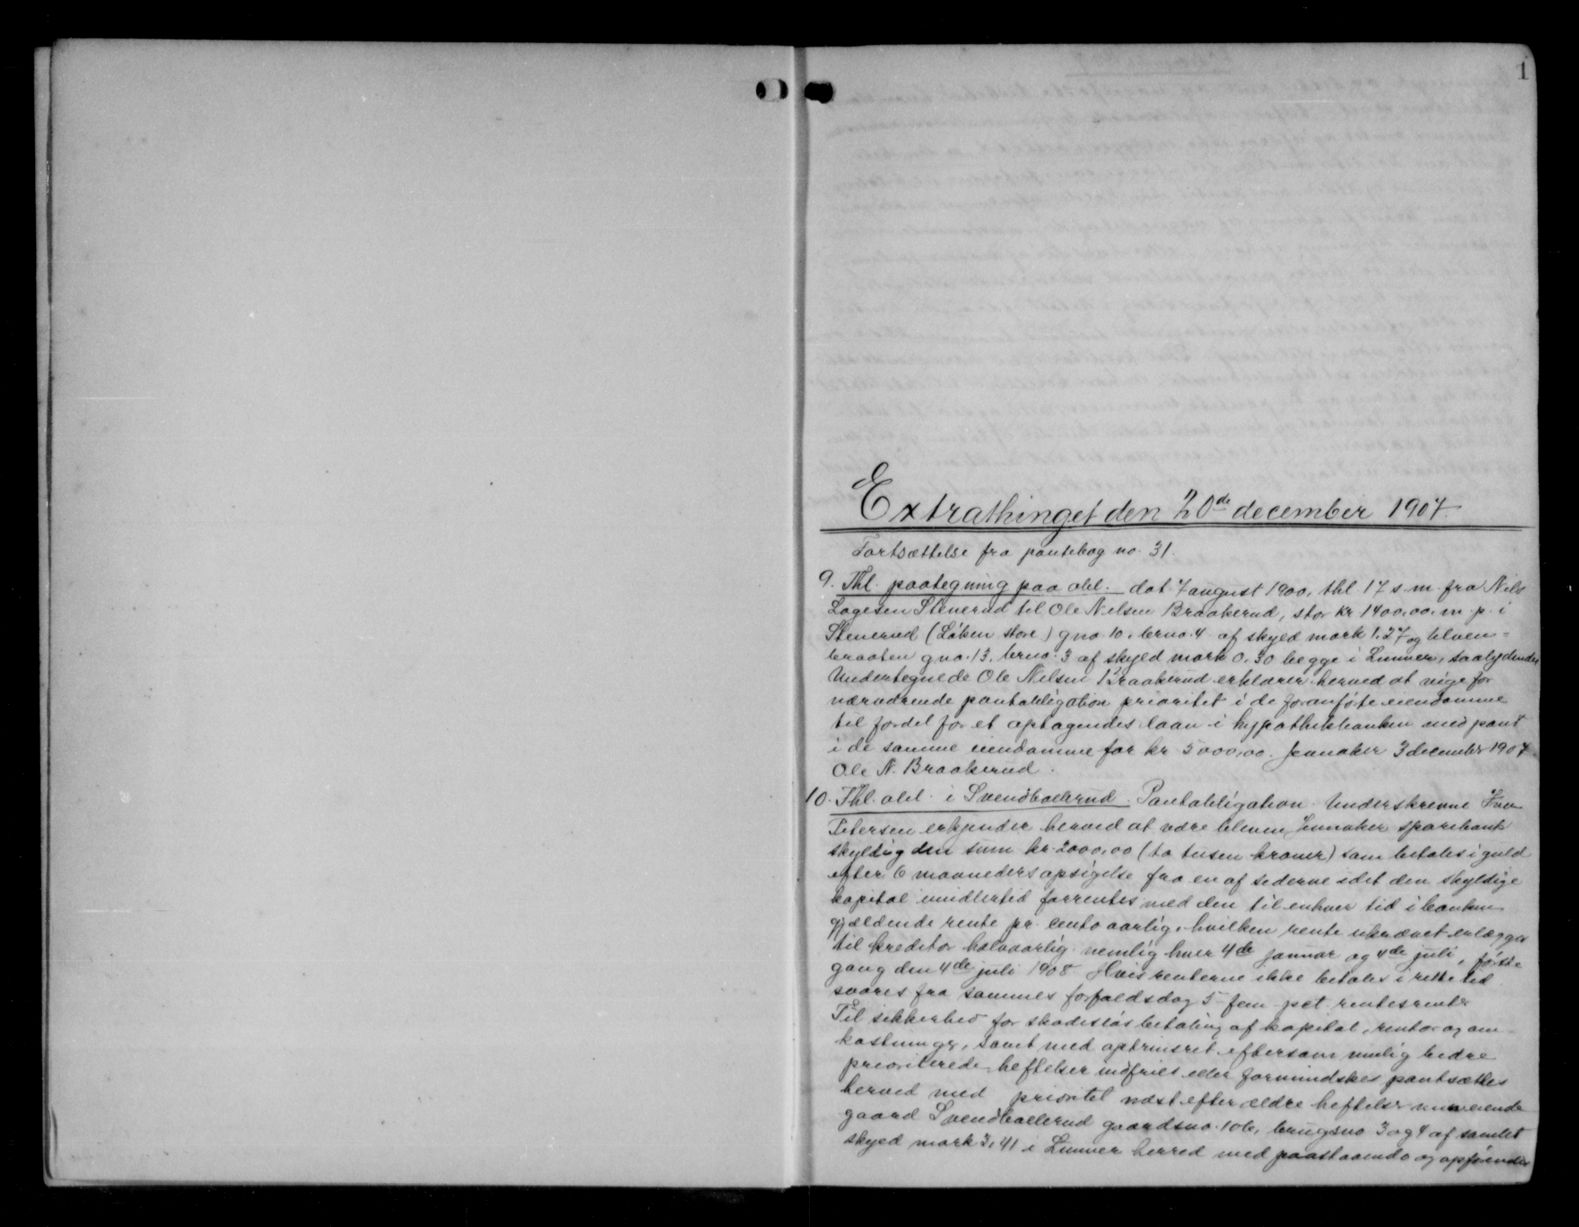 1
Extrathinget den 20de december 1907.
Fortsættelse fra pantebog no. 31.
9. Thl. paategning paa obl. dat 7 august 1900, thl 17 s. m. fra Nils
Lagesen Stenerud til Ole Nelsen Braakerud, stor kr 1400,00. m. p. i
Stenerud (Løken store) gno. 10, brno. 4 af skyld mark 1.27 og
braaten gno. 13, brno. 3 af skyld mark 0.30 begge i Lunner, saalydende
Undertegnede Ole Nelsen Braakerud erklærer herved at vige for
nærværende pantobligation prioritet i de foranførte eiendomme
til fordel for et optagendes laan i hypothekbanken med pant
i de samme eiendomme for kr 5000,00. Jevnaker 3 december 1907
Ole N. Braakerud.
10. Thl. obl. i Svendballerud. Pantobligation. Underskrevne
Petersen erkjender herved at være bleven Jevnaker sparebank
skyldig den sum kr. 2000,00 (to tusen kroner) som betales i guld
efter 6 maaneders opsigelse fra en af siderne idet den skyldige
kapital imidlertid forrentes med den til enhver tid i banken
gjældende rente pr. cento aarlig, hvilken rente ukrævet erlægges
til kreditor halvaarlig nemlig hver 4de januar og 4de juli, første
gang den 4de juli 1908. Hvis renterne ikke betales i rette tid
svares fra sammes forfaldsdag 5 fem pct. rentesrenter
Til sikkerhed for skadesløs betaling af kapital, renter og om
kostninger, samt med optrinsret eftersom mulig bedre
prioriterede heftelser indfries eller formindskes pantsættes
herved med prioritet næst efter ældre heftelser min eiende
gaard Svendballerud gaardsno. 106, brugsno 3 og 4 af samlet
skyld mark 3,41 i Lunner herred med paastaaende og opførendes